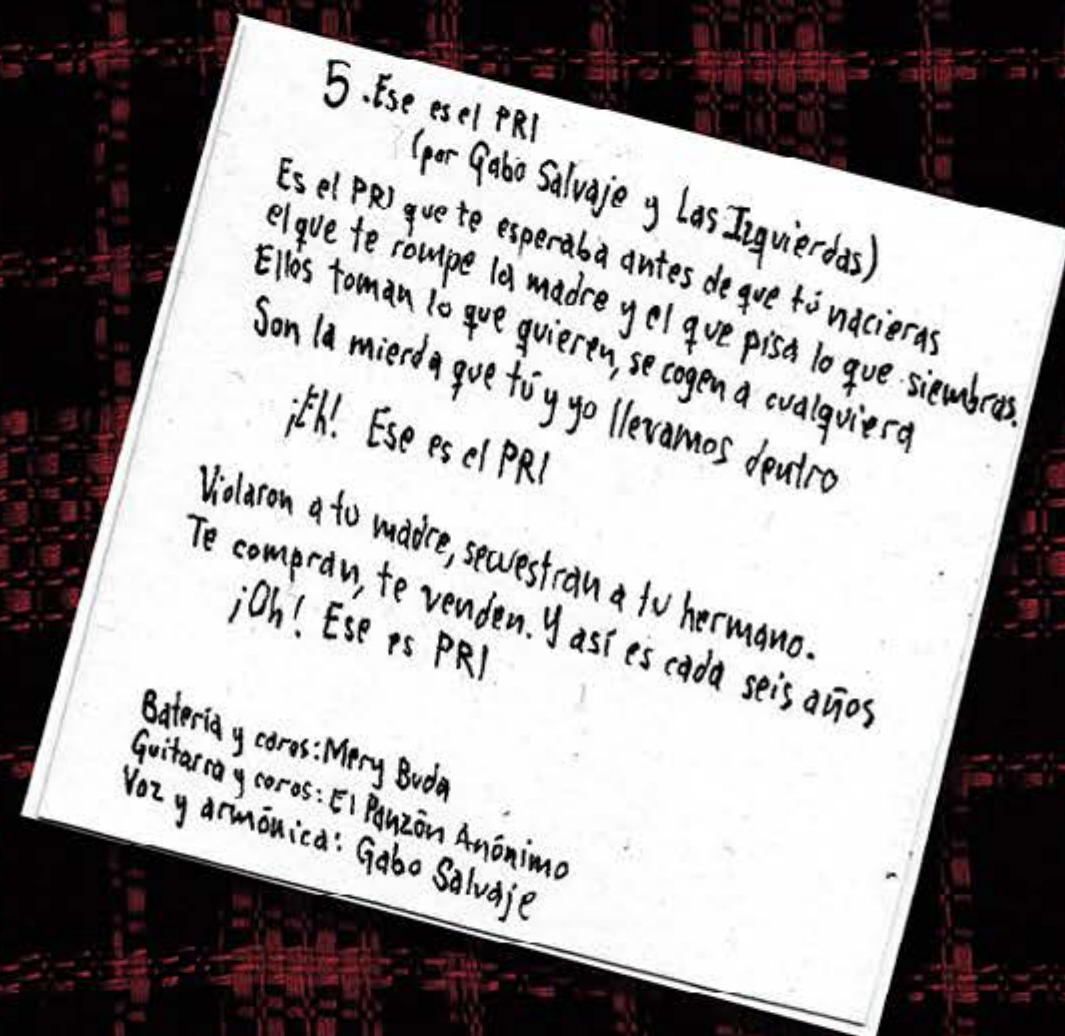 5. Ese es el PRI
(por Gabo Salvaje y Las Izquierdas)
Es el PRI que te esperaba antes de que tú nacieras
el que te rompe la madre y el que pisa lo que siembras.
Ellos toman lo que quieren, se cogen a cualquiera
Son la mierda que tú y yo llevamos dentro
¡Eh! Ese es el PRI
Violaron a tu madre, secuestran a tu hermano.
Te compran, te venden. Y así es cada seis años
¡Oh! Ese es PRI
Batería y coros: Mery Buda
Guitarra y coros: El Panzón Anónimo
Voz y armónica: Gabo Salvaje